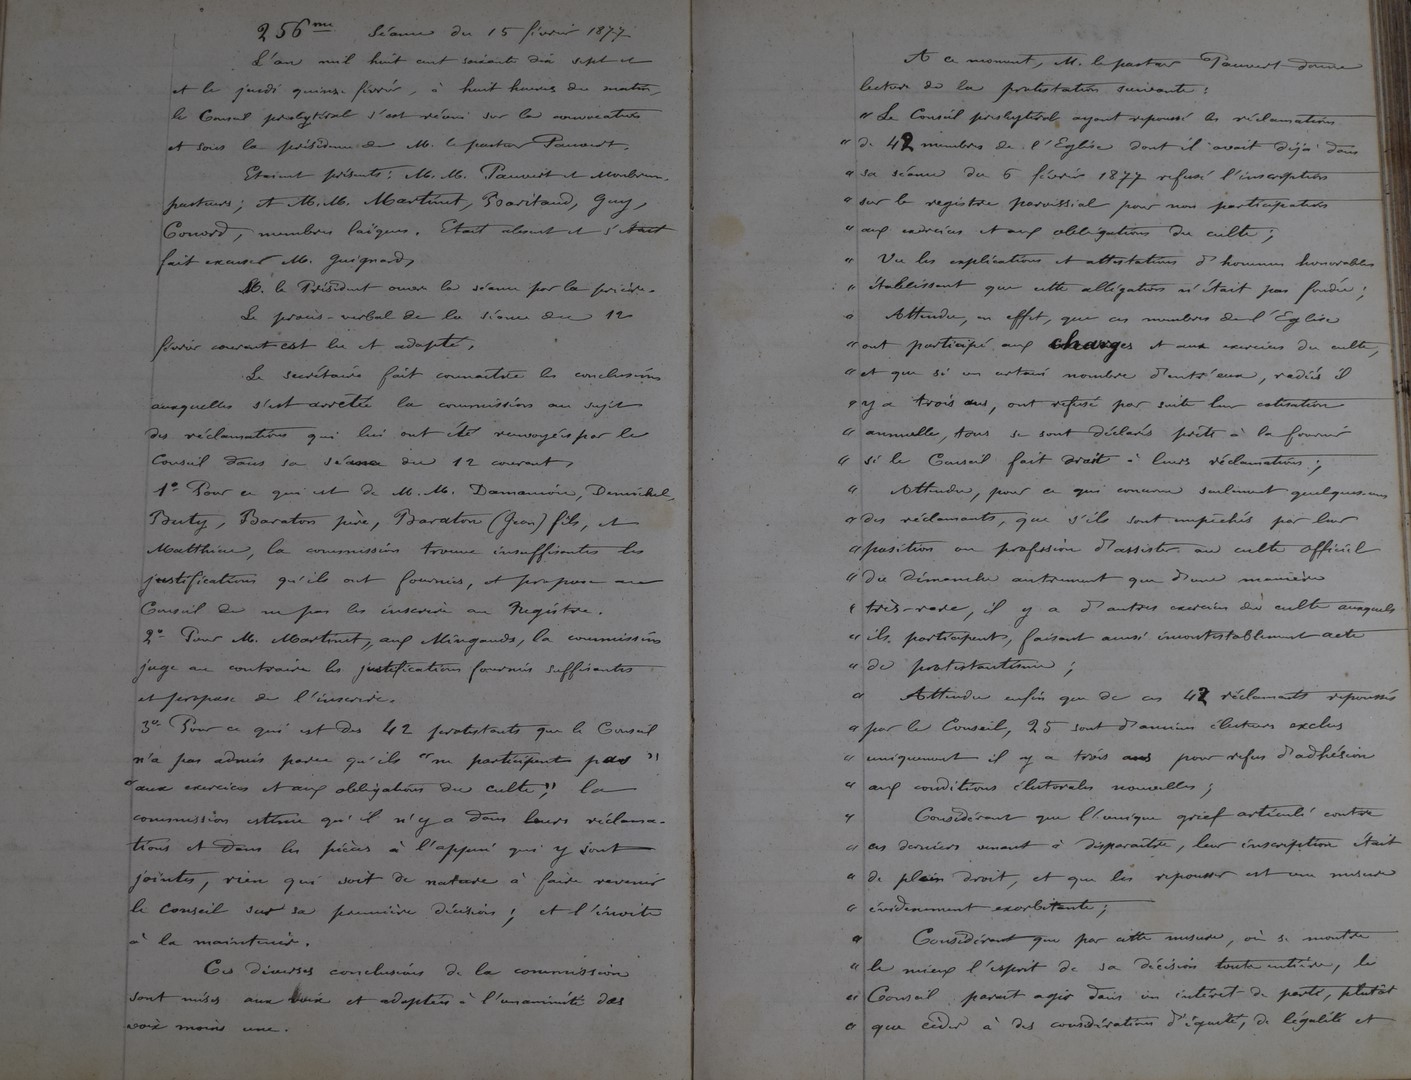 256me Séance du 15 février 1877
L'an mil huit cent soixante dix sept et
et le jeudi quinze février, à huit heures du matin,
le Conseil presbytéral s'est réuni sur la convocation
et sous la présidence de M. le pasteur Pauvert.
Etaient présents : M. M. Pauvert et Monbrun,
pasteurs ; et M. M. Martinet, Baritaud, Guy,
Conord, membres laïques. Etait absent et s'était
fait excuser M. Guignard,
M. le Président ouvre la séance par la prière.
Le procès-verbal de la séance du 12
février courant est lu et adopté.
Le secrétaire fait connaître les conclusions
auxquelles s'est arrêtée la commission au sujet
des réclamations qui lui ont été renvoyées par le
Conseil dans sa séance du 12 courant,
1º Pour ce qui est de M. M. Damamion, Demichel,
Buty, Baraton père, Baraton (Jean) fils, et
Matthieu, la commission trouve insuffisantes les
justifications qu'ils ont fournies, et propose au
Conseil de ne pas les inscrire au Registre.
2º Pour M. Martinet, aux Mingauds, la commission
juge au contraire les justifications fournies suffisantes
et propose de l'inscrire.
3º Pour ce qui est des 42 protestants que le Conseil
n'a pas admis parce qu'ils "ne participent pas"
"aux exercices et aux obligations du culte", la
commission estime qu'il n'y a dans leurs réclama-
tions et dans les pièces à l'appui qui y sont
jointes, rien qui soit de nature à faire revenir
le Conseil sur sa première décision ; et l'invite
à la maintenir.
Ces diverses conclusions de la commission
sont mises aux voix et adoptées à l'unanimité des
voix moins une.
A ce moment, M. le pasteur Pauvert donne
lecture de la protestation suivante :
" Le Conseil presbytéral ayant repoussé les réclamations
" de 42 membres de l'Eglise dont il avait déjà dans
" sa séance du 6 février 1877 refusé l'inscription
" sur le registre paroissial pour non participation
" aux exercices et aux obligations du culte ;
" Vu les explications et attestations d'hommes honorables
" établissant que cette allégation n'était pas fondée ;
" Attendu, en effet, que ces membres de l'Eglise
" ont participé aux charges et aux exercices du culte,
" et que si un certain nombre d'entr'eux, radiés il
" y a trois ans, ont refusé par suite leur cotisation
" annuelle, tous se sont déclarés prêts à la fournir
" si le Conseil fait droit à leurs réclamations ;
" Attendu, pour ce qui concerne seulement quelques-uns
" des réclamants, que s'ils sont empêchés par leur
" position ou profession d'assister au culte officiel
" du dimanche autrement que d'une manière
" très-rare, il y a d'autres exercices du culte auxquels
" ils participent, faisant ainsi incontestablement acte
" de protestantisme ;
" Attendu enfin que de ces 42 réclamants repoussés
" par le Conseil, 25 sont d'anciens électeurs exclus
" uniquement il y a trois ans pour refus d'adhésion
" aux conditions électorales nouvelles ;
" Considérant que l'unique grief articulé contre
" ces derniers venant à disparaître, leur inscription était
" de plein droit, et que les repousser est une mesure
" évidemment exorbitante ;
" Considérant que par cette mesure, où se montre
" le mieux l'esprit de sa décision toute entière, le
" Conseil paraît agir dans un intérêt de parti, plutôt
" que céder à des considérations d'équité, de légalité et